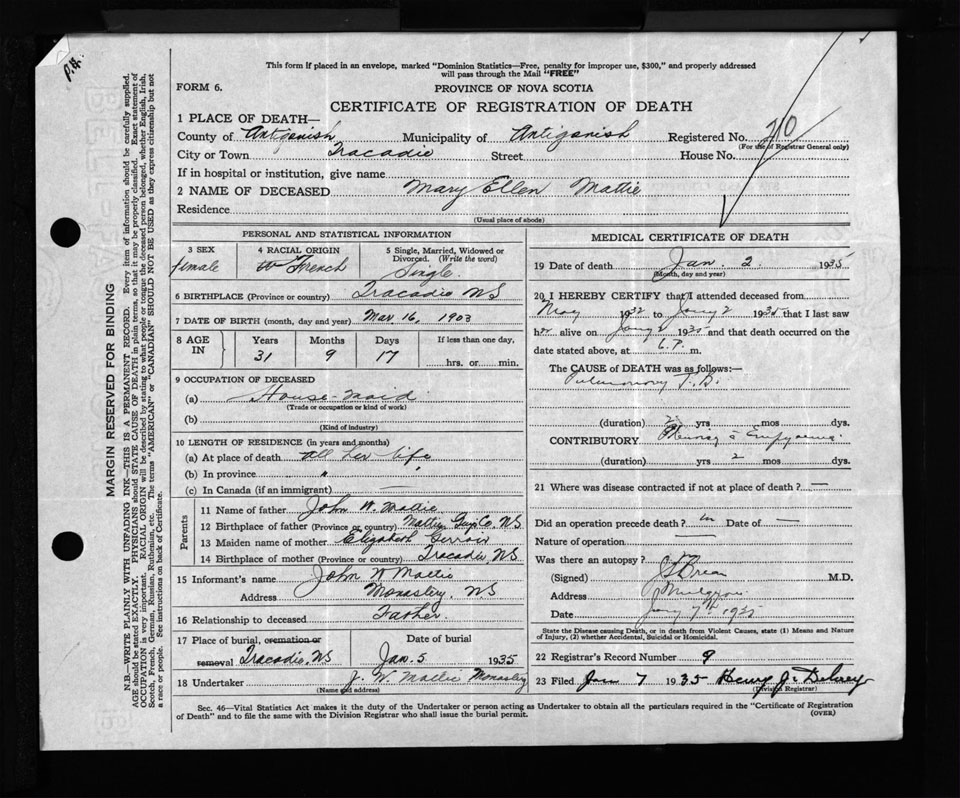 P.H.
This form if placed in an envelope, marked "Dominion Statistics—Free, penalty for improper use, $300," and properly addressed
will pass through the Mail "FREE"
FORM 6.
PROVINCE OF NOVA SCOTIA
CERTIFICATE OF REGISTRATION OF DEATH
1 PLACE OF DEATH—
County of Antigonish Municipality of Antigonish Registered No. 210
(For use of Registrar General only)
City or Town Tracadie Street House No.
If in hospital or institution, give name
2 NAME OF DECEASED Mary Ellen Mattie
Residence
(Usual place of abode)
MARGIN RESERVED FOR BINDING
N.B.—WRITE PLAINLY WITH UNFADING INK—THIS IS A PERMANENT RECORD. Every item of information should be carefully supplied.
AGE should be stated EXACTLY. PHYSICIANS should STATE CAUSE OF DEATH in plain terms, so that it may be properly classified. Exact statement of
OCCUPATION is very important. RACIAL ORIGIN will be described by stating to what people or tongue the deceased person belonged, whether English, Irish,
Scotch, French, German, Russian, Ruthenian, etc. The terms "AMERICAN" or "CANADIAN" SHOULD NOT BE USED as they express citizenship but not
a race or people. See instructions on back of Certificate.
PERSONAL AND STATISTICAL INFORMATION
3 SEX
female
4 RACIAL ORIGIN
French
5 Single, Married, Widowed or
Divorced. (Write the word)
Single.
6 BIRTHPLACE (Province or country) Tracadie NS
7 DATE OF BIRTH (month, day and year) Mar. 16, 1903
8 AGE
IN
Years
31
Months
9
Days
17
If less than one day,
hrs. or min.
9 OCCUPATION OF DECEASED
(a) House-maid
(Trade or occupation or kind of work)
(b)
(Kind of industry)
10 LENGTH OF RESIDENCE (in years and months)
(a) At place of death all her life
(b) In province " "
(c) In Canada (if an immigrant) —
Parents
11 Name of father John W. Mattie
12 Birthplace of father (Province or country) Guys Co. NS
13 Maiden name of mother Elizabeth
14 Birthplace of mother (Province or country) Tracadie, NS
15 Informant's name John W Mattie
Address Monastery, NS
16 Relationship to deceased Father
17 Place of burial, cremation or
removal Tracadie, NS
Date of burial
Jan. 5 1935
18 Undertaker J. W. Mattie Monastery
(Name and address)
MEDICAL CERTIFICATE OF DEATH
19 Date of death Jan. 2. 1935
(Month, day and year)
20 I HEREBY CERTIFY that I attended deceased from
May 1932 to Jany 2 1935 that I last saw
her alive on Jany 1935 and that death occurred on
date stated above, at 6.P. m.
The CAUSE of DEATH was as follows:—
Pulmonary T.B.
(duration) 2 yrs mos dys.
CONTRIBUTORY Pleurisy & Empyema.
(duration) yrs 2 mos dys.
21 Where was disease contracted if not at place of death? —
Did an operation precede death? Date of —
Nature of operation —
Was there an autopsy?
(Signed) M.D.
Address Mulgrave
Date Jany 7th 1935
State the Disease causing Death, or in death from Violent Causes, state (1) Means and Nature
of Injury, (2) whether Accidental, Suicidal or Homicidal.
22 Registrar's Record Number 9
23 Filed Jan 7 1935 Henry J. Delorey
(Division Registrar)
Sec. 46—Vital Statistics Act makes it the duty of the Undertaker or person acting as Undertaker to obtain all the particulars required in the "Certificate of Registration
of Death" and to file the same with the Division Registrar who shall issue the burial permit.
(OVER)